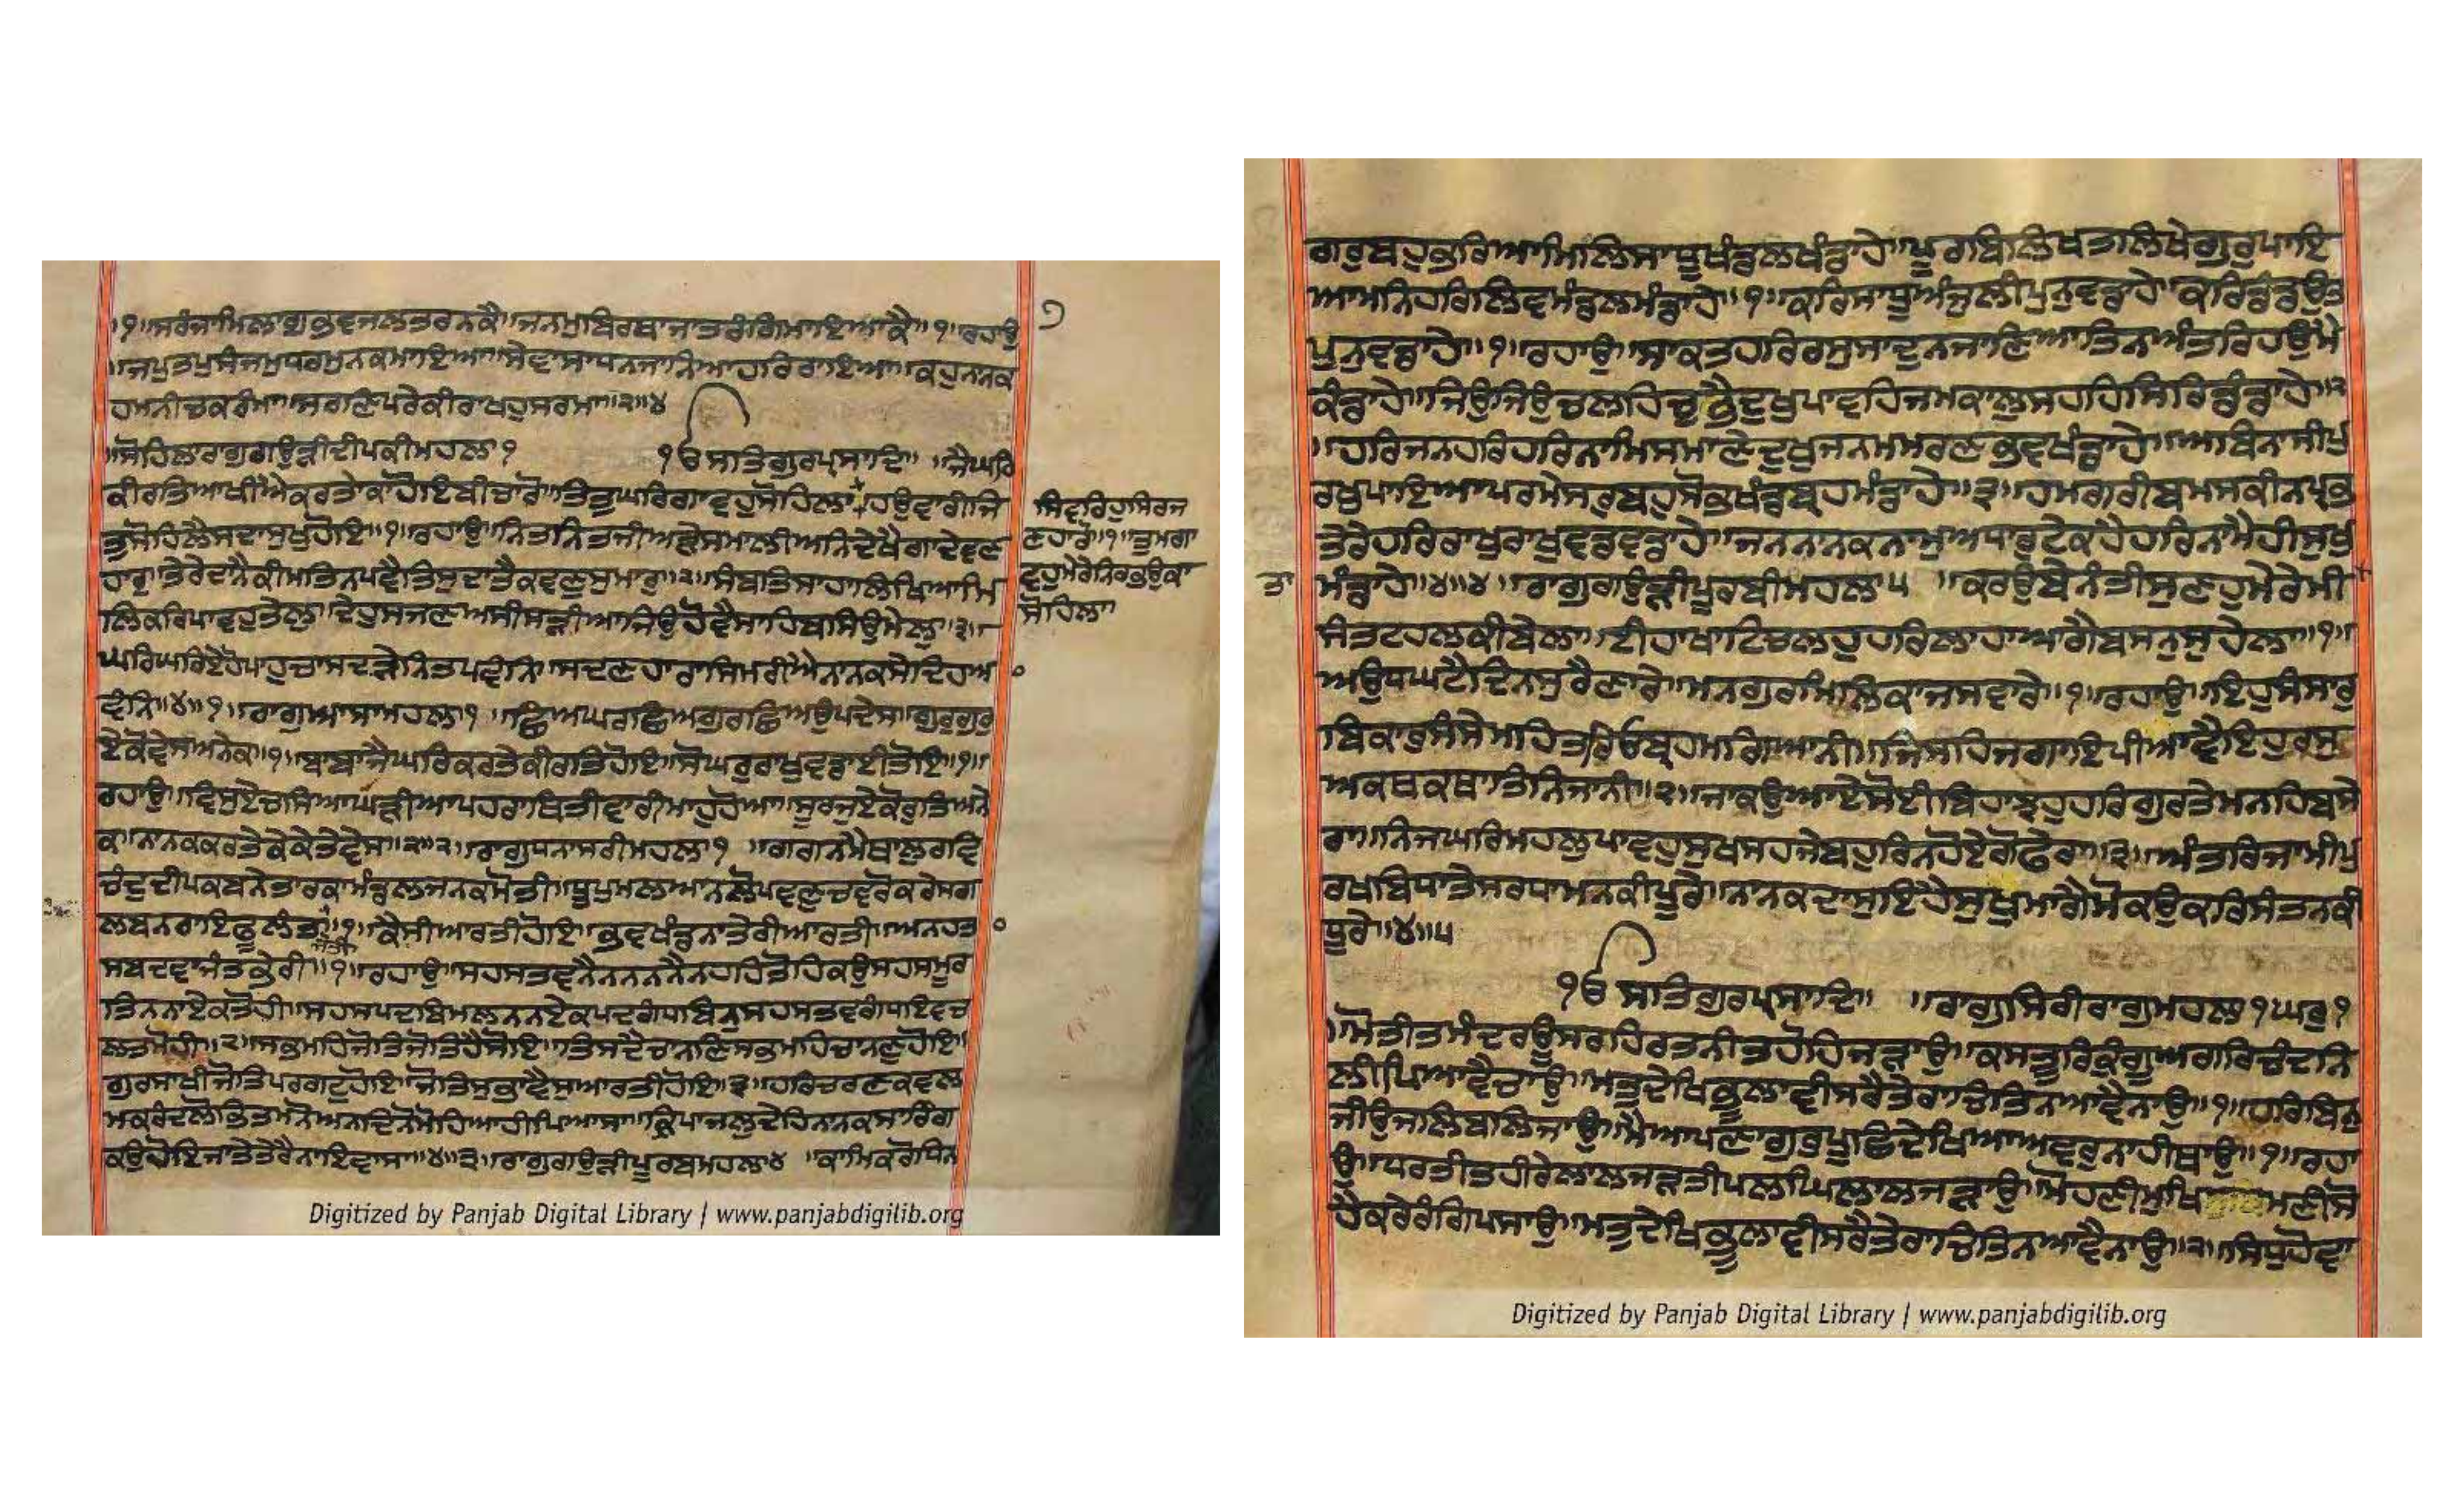 ੧॥ਸਰੰਜਾਮਿਲਾਗੁਭਵਜਲਤਰਨਕੈ॥ਜਨਮੁਬ੍ਰਿਥਾਜਾਤਰੰਗਿਮਾਇਆਕੈ॥੧॥ਰਹਾਉ
॥ਜਪੁਤਪੁਸੰਜਮੁਧਰਮੁਨਕਮਾਇਆ॥ਸੇਵਾਸਾਧਨਜਾਨਿਆਹਰਿਰਾਇਆ॥ਕਹੁਨਾਨਕ
ਹਮਨੀਚਕਰੰਮਾ॥ਸਰਣਿਪਰੇਕੀਰਾਖਹੁਸਰਮਾ॥੨॥੪
॥ਸੋਹਿਲਾਰਾਗੁਗਉੜੀਦੀਪਕੀਮਹਲਾ੧ ੧ਓਸਤਿਗੁਰਪ੍ਰਸਾਦਿ॥ ॥ਜੈਘਰਿ
ਕੀਰਤਿਆਖੀਐਕਰਤੇਕਾਹੋਇਬੀਚਾਰੋ॥ਤਿਤੁਘਰਿਗਾਵਹੁਸੋਹਿਲਾ+ਹਉਵਾਰੀਜਿ
ਤੁਸੋਹਿਲੈਸਦਾਸੁਖੁਹੋਇ॥੧॥ਰਹਾਉ॥ਨਿਤਨਿਤਜੀਅੜੇਸਮਾਲੀਅਨਿਦੇਖੈਗਾਦੇਵਣ
ਹਾਰੁ॥ਤੇਰੇਦਾਨੈਕੀਮਤਿਨਪਵੈਤਿਸੁਦਾਤੇਕਵਣੁਸੁਮਾਰੁ॥੨॥ਸੰਬਤਿਸਾਹਾਲਿਖਿਆਮਿ
ਲਿਕਰਿਪਾਵਹੁਤੇਲੁ॥ਦੇਹੁਸਜਣਅਸੀਸੜੀਆਜਿਉਹੋਵੈਸਾਹਿਬਸਿਉਮੇਲੁ॥੩॥
ਘਰਿਘਰਿਏਹੋਪਾਹੁਚਾਸਦੜੇਨਿਤਪਵੰਨਿ॥ਸਦਣਹਾਰਾਸਿਮਰੀਐਨਾਨਕਸੇਦਿਹਆ
ਵੰਨਿ॥੪॥੧॥ਰਾਗੁਆਸਾਮਹਲਾ੧ ॥ਛਿਅਘਰਛਿਅਗੁਰਛਿਅਉਪਦੇਸ॥ਗੁਰੁਗੁਰੁ
ਏਕੋਵੇਸਅਨੇਕ॥੧॥ਬਾਬਾਜੈਘਰਿਕਰਤੇਕੀਰਤਿਹੋਇ॥ਸੋਘਰੁਰਾਖੁਵਡਾਈਤੋਇ॥੧॥
ਰਹਾਉ॥ਵਿਸੁਏਚਸਿਆਘੜੀਆਪਹਰਾਥਿਤੀਵਾਰੀਮਾਹੁਹੋਆ॥ਸੂਰਜੁਏਕੋਰੁਤਿਅਨੇ
ਕ॥ਨਾਨਕਕਰਤੇਕੇਕੇਤੇਵੇਸ॥੨॥੨॥ਰਾਗੁਧਨਾਸਰੀਮਹਲਾ੧ ॥ਗਗਨਮੈਥਾਲੁਰਵਿ
ਚੰਦੁਦੀਪਕਬਨੇਤਾਰਕਾਮੰਡਲਜਨਕਮੋਤੀ॥ਧੂਪੁਮਲਆਨਲੋਪਵਣੁਚਵਰੋਕਰੇਸਗ
ਲਬਨਰਾਇਫੂਲੰਤ॥੧॥ਕੈਸੀਆਰਤੀਹੋਇ॥ਭਵਖੰਡਨਾਤੇਰੀਆਰਤੀ॥ਅਨਹਤ
ਜੋਤੀ
ਸਬਦਵਾਜੰਤਭੇਰੀ॥੧॥ਰਹਾਉ॥ਸਹਸਤਵਨੈਨਨਨਨੈਨਹਹਿਤੋਹਿਕਉਸਹਸਮੂਰ
ਤਿਨਨਾਏਕਤੋਹੀ॥ਸਹਸਪਦਬਿਮਲਨਨਏਕਪਦਗੰਧਬਿਨੁਸਹਸਤਵਗੰਧਇਵਚ
ਲਤਮੋਹੀ॥੨॥ਸਭਮਹਿਜੋਤਿਜੋਤਿਹੈਸੋਇ॥ਤਿਸਦੈਚਾਨਣਿਸਭਮਹਿਚਾਨਣੁਹੋਇ॥
ਗੁਰਸਾਖੀਜੋਤਿਪਰਗਟੁਹੋਇ॥ਜੋਤਿਸੁਭਾਵੈਸੁਆਰਤੀਹੋਇ॥੩॥ਹਰਿਚਰਣਕਵਲ
ਮਕਰੰਦਲੋਭਿਤਮਨੋਅਨਦਿਨੋਮੋਹਿਆਹੀਪਿਆਸਾ॥ਕ੍ਰਿਪਾਜਲੁਦੇਹਿਨਾਨਕਸਾਰਿੰਗ
ਕਉਹੋਇਜਾਤੇਤੇਰੈਨਾਇਵਾਸਾ॥੪॥੩॥ਰਾਗੁਗਉੜੀਪੂਰਬਮਹਲਾ੪ ॥ਕਾਮਿਕਰੋਧਿਨ
੭
ਸਿਵਰਿਹੁਸਿਰਜ
ਣਹਾਰੋ॥੧॥ਤੁਮਗਾ
ਵਹੁਮੇਰੇਨਿਰਭਉਕਾ
ਸੋਹਿਲਾ
Digitized by Panjab Digital Library | www.panjabdigilib.org
ਗਰੁਬਹੁਭਰਿਆਮਿਲਿਸਾਧੂਖੰਡਲਖੰਡਾਹੇ॥ਪੂਰਬਿਲਿਖਤਲਿਖੇਗੁਰੁਪਾਇ
ਆਮਨਿਹਰਿਲਿਵਮੰਡਲਮੰਡਾਹੇ॥੧॥ਕਰਿਸਾਧੂਅੰਜੁਲੀਪੁਨੁਵਡਾਹੇ॥ਕਰਿਡੰਡਉਤ
ਪੁਨੁਵਡਾਹੇ॥੧॥ਰਹਾਉ॥ਸਾਕਤਹਰਿਰਸੁਸਾਦੁਨਜਾਣਿਆਤਿਨਅੰਤਰਿਹਉਮੈ
ਕੰਡਾਹੇ॥ਜਿਉਜਿਉਚਲਹਿਚੁਭੈਦੁਖੁਪਾਵਹਿਜਮਕਾਲੁਸਹਹਿਸਿਰਿਡੰਡਾਹੇ॥੨
॥ਹਰਿਜਨਹਰਿਹਰਿਨਾਮਿਸਮਾਣੇਦੁਖੁਜਨਮਮਰਣਭਵਖੰਡਾਹੇ॥ਅਬਿਨਾਸੀਪੁ
ਰਖੁਪਾਇਆਪਰਮੇਸਰੁਬਹੁਸੋਭਖੰਡਬ੍ਰਹਮੰਡਾਹੇ॥੩॥ਹਮਗਰੀਬਮਸਕੀਨਪ੍ਰਭ
ਤੇਰੇਹਰਿਰਾਖੁਰਾਖੁਵਡਵਡਾਹੇ॥ਜਨਨਾਨਕਨਾਮੁਅਧਾਰੁਟੇਕਹੈਹਰਿਨਾਮੈਹੀਸੁਖੁ
ਮੰਡਾਹੇ॥੪॥੪॥ਰਾਗੁਗਉੜੀਪੂਰਬੀਮਹਲਾ੫ ॥ਕਰਉਬੇਨੰਤੀਸੁਣਹੁਮੇਰੇਮੀ
ਤਾ
ਸੰਤਟਹਲਕੀਬੇਲਾ॥ਈਹਾਖਾਟਿਚਲਹੁਹਰਿਲਾਹਾਆਗੈਬਸਨੁਸੁਹੇਲਾ॥੧॥
ਅਉਧਘਟੈਦਿਨਸੁਰੈਣਾਰੇ॥ਮਨਗੁਰਮਿਲਿਕਾਜਸਵਾਰੇ॥੧॥ਰਹਾਉ॥ਇਹੁਸੰਸਾਰੁ
ਬਿਕਾਰੁਸੰਸੇਮਹਿਤਰਿਓਬ੍ਰਹਮਗਿਆਨੀ॥ਜਿਸਹਿਜਗਾਇਪੀਆਵੈਇਹੁਰਸੁ
ਅਕਥਕਥਾਤਿਨਿਜਾਨੀ॥੨॥ਜਾਕਉਆਏਸੋਈਬਿਹਾਝਹੁਹਰਿਗੁਰਤੇਮਨਹਿਬਸੇ
ਰਾ॥ਨਿਜਘਰਿਮਹਲੁਪਾਵਹੁਸੁਖਸਹਜੇਬਹੁਰਿਨਹੋਏਗੋਫੇਰਾ॥੩॥ਅੰਤਰਿਜਾਮੀਪੁ
ਰਖਬਿਧਾਤੇਸਰਧਾਮਨਕੀਪੂਰੇ॥ਨਾਨਕਦਾਸੁਇਹੈਸੁਖੁਮਾਗੈਮੋਕਉਕਰਿਸੰਤਨਕੀ
ਧੂਰੇ॥੪॥੫
੧ਓਸਤਿਗੁਰਪ੍ਰਸਾਦਿ॥ ॥ਰਾਗੁਸਿਰੀਰਾਗੁਮਹਲਾ੧ਘਰੁ੧
॥ਮੋਤੀਤਮੰਦਰਊਸਰਹਿਰਤਨੀਤਹੋਹਿਜੜਾਉ॥ਕਸਤੂਰਿਕੁੰਗੂਅਗਰਿਚੰਦਨਿ
ਲੀਪਿਆਵੈਚਾਉ॥ਮਤੁਦੇਖਿਭੂਲਾਵੀਸਰੈਤੇਰਾਚਿਤਿਨਆਵੈਨਾਉ॥੧॥ਹਰਿਬਿਨੁ
ਜੀਉਜਲਿਬਲਿਜਾਉ॥ਮੈਆਪਣਾਗੁਰੁਪੂਛਿਦੇਖਿਆਅਵਰੁਨਾਹੀਥਾਉ॥੧॥ਰਹਾ
ਉ॥ਧਰਤੀਤਹੀਰੇਲਾਲਜੜਤੀਪਲਘਿਲਾਲਜੜਾਉ॥ਮੋਹਣੀਮੁਖਿਮਣੀਸੋ
ਹੈਕਰੇਰੰਗਿਪਸਾਉ॥ਮਤੁਦੇਖਿਭੂਲਾਵੀਸਰੈਤੇਰਾਚਿਤਿਨਆਵੈਨਾਉ॥੨॥ਸਿਧੁਹੋਵਾ
Digitized by Panjab Digital Library | www.panjabdigilib.org